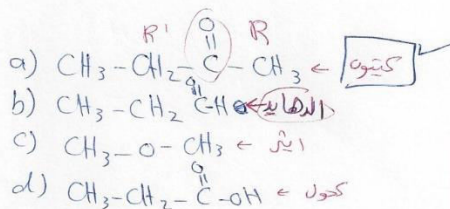 R' O R
a) CH3-CH2-C-CH3 ← كيتون
b) CH3-CH2 C-H O ← الدهايد
c) CH3-O-CH3 ← ايثر
O
d) CH3-CH2-C-OH ← كحول